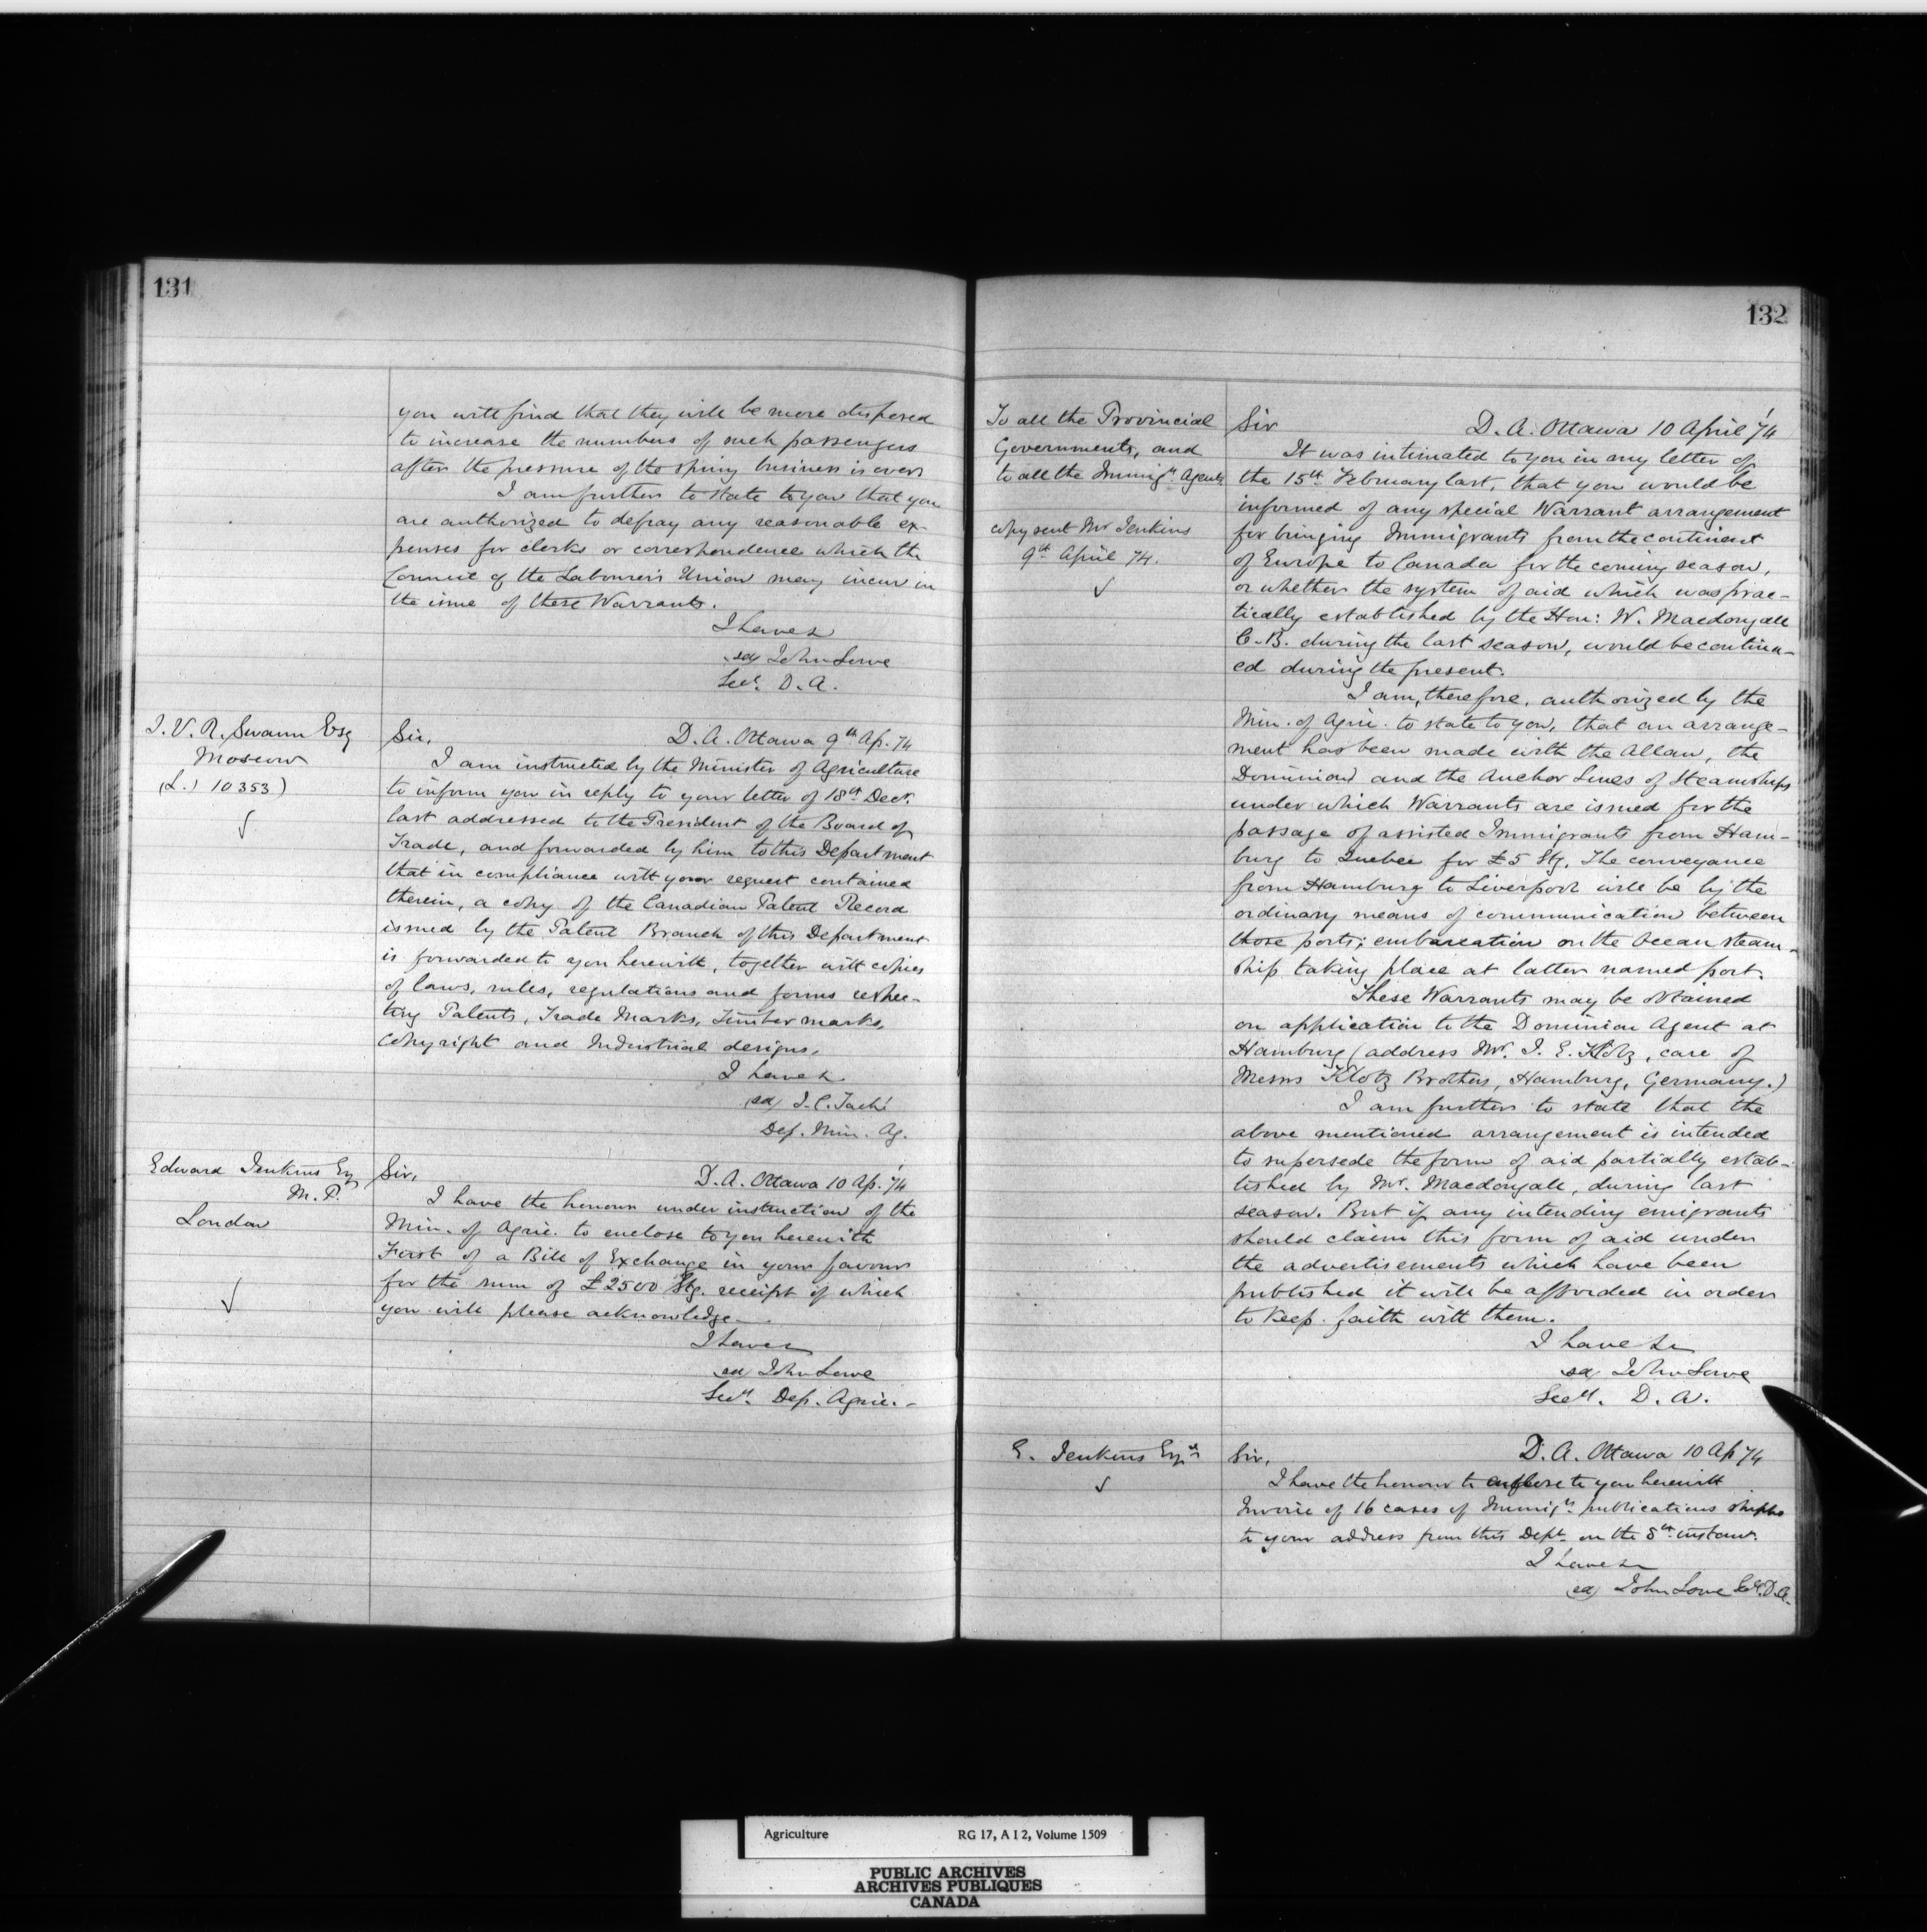 131
you will find that they will be more disposed
to increase the numbers of such passengers
after the pressure of the spring business is over.
I am further to state to you that you
are authorized to defray any reasonable ex-
penses for clerks or correspondence which the
Council of the Labourers Union may incur in
the issue of these Warrants.
I have &
sd/ John Lowe
Secy. D. A.
J. V. R. Swann Esq
Moscow
(L.) 10353)
Sir,
D. A. Ottawa 9th Ap. 74
I am instructed by the Minister of Agriculture
to inform you in reply to your letter of 18th Decr.
last addressed to the President of the Board of
Trade, and forwarded by him to this Department
that in compliance with your request contained
therein, a copy of the Canadian Patent Record
issued by the Patent Branch of this Department
is forwarded to you herewith, together with copies
of laws, rules, regulations and forms respec-
ting Patents, Trade Marks, Timber marks,
Copyright and Industrial designs.
I have &
sd/ J. C. Taché
Dep. Min. Ag.
Edward Jenkins Esq
M. P.
London
Sir,
D. A. Ottawa 10 Ap. '74
I have the honour under instruction of the
Min. of Agric. to enclose to you herewith
First of a Bill of Exchange in your favour
for the sum of £2500 Stg. receipt of which
you will please acknowledge.
I have &
sd John Lowe
Secy. Dep. Agric.
132
To all the Provincial
Governments, and
to all the Immign. Agents
copy sent Mr Jenkins
9th April 74.
Sir
D. A. Ottawa 10 April '74
It was intimated to you in my letter of
the 15th February last, that you would be
informed of any special Warrant arrangement
for bringing Immigrants from the continent
of Europe to Canada for the coming season,
or whether the system of aid which was prac-
tically established by the Hon: W. Macdougall
C. B. during the last season, would be continu-
ed during the present.
I am, therefore, authorized by the
Min. of Agric. to state to you, that an arrange-
ment has been made with the Allan, the
Dominion and the Anchor Lines of Steamships
under which Warrants are issued for the
passage of assisted Immigrants from Ham-
burg to Quebec for £5 Stg. The conveyance
from Hamburg to Liverpool will be by the
ordinary means of communication between
those ports; embarcation on the Ocean steam-
ship taking place at latter named port.
These Warrants may be obtained
on application to the Dominion Agent at
Hamburg (address Mr. J. E. Klotz, care of
Messrs Klotz Brothers, Hamburg, Germany.)
I am further to state that the
above mentioned arrangement is intended
to supersede the form of aid partially estab-
lished by Mr. Macdougall, during last
season. But if any intending emigrants
should claim this form of aid under
the advertisements which have been
published it will be afforded in order
to keep faith with them.
I have &
sd John Lowe
Secy. D. A.
E. Jenkins Esqr
Sir,
D. A. Ottawa 10 Ap 74
I have the honour to enclose to you herewith
Invoice of 16 cases of Immign. publications shipped
to your address from this Dept. on the 8th instant.
I have &
sd/ John Lowe Secy. D. A.
Agriculture RG 17, A I 2, Volume 1509
PUBLIC ARCHIVES
ARCHIVES PUBLIQUES
CANADA